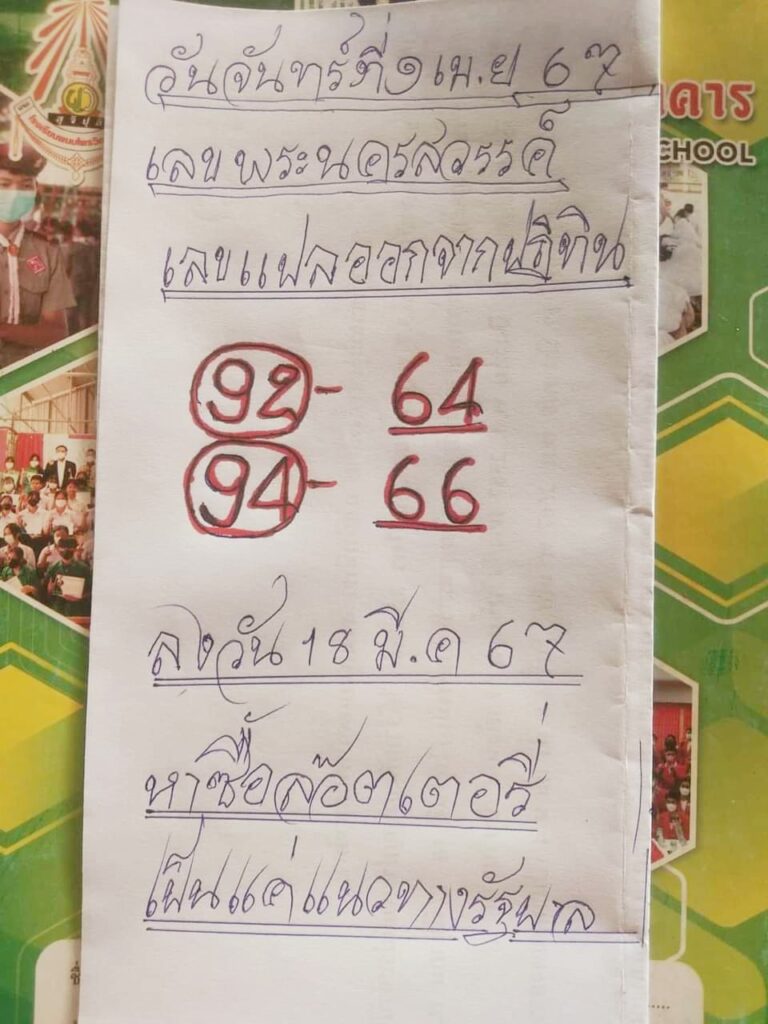 วันจันทร์ที่ ๑ เม.ย 67
เลขพระนครสวรรค์
เลขแปลออกจากปฏิทิน
92 - 64
94 - 66
ลงวัน 18 มี.ค 67
หาซื้อล๊อตเตอรี่
เป็นแค่แนวทางรัฐบาล
คาร
CHOOL